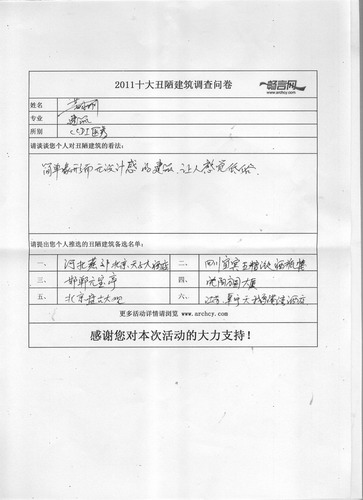 2011十大丑陋建筑调查问卷
畅言网
www.archcy.com
姓名
专业 建筑
所别
请谈谈您个人对丑陋建筑的看法:
简单表形而无设计感的建筑,让人感觉低俗.
请提出您个人推选的丑陋建筑备选名单:
一、 河北燕郊北京天子大酒店
二、 四川宜宾五粮液酒瓶楼
三、 邯郸元宝亭
四、 沈阳方圆大厦
五、 北京盘古大观
六、
更多活动详情请浏览 www.archcy.com
感谢您对本次活动的大力支持!